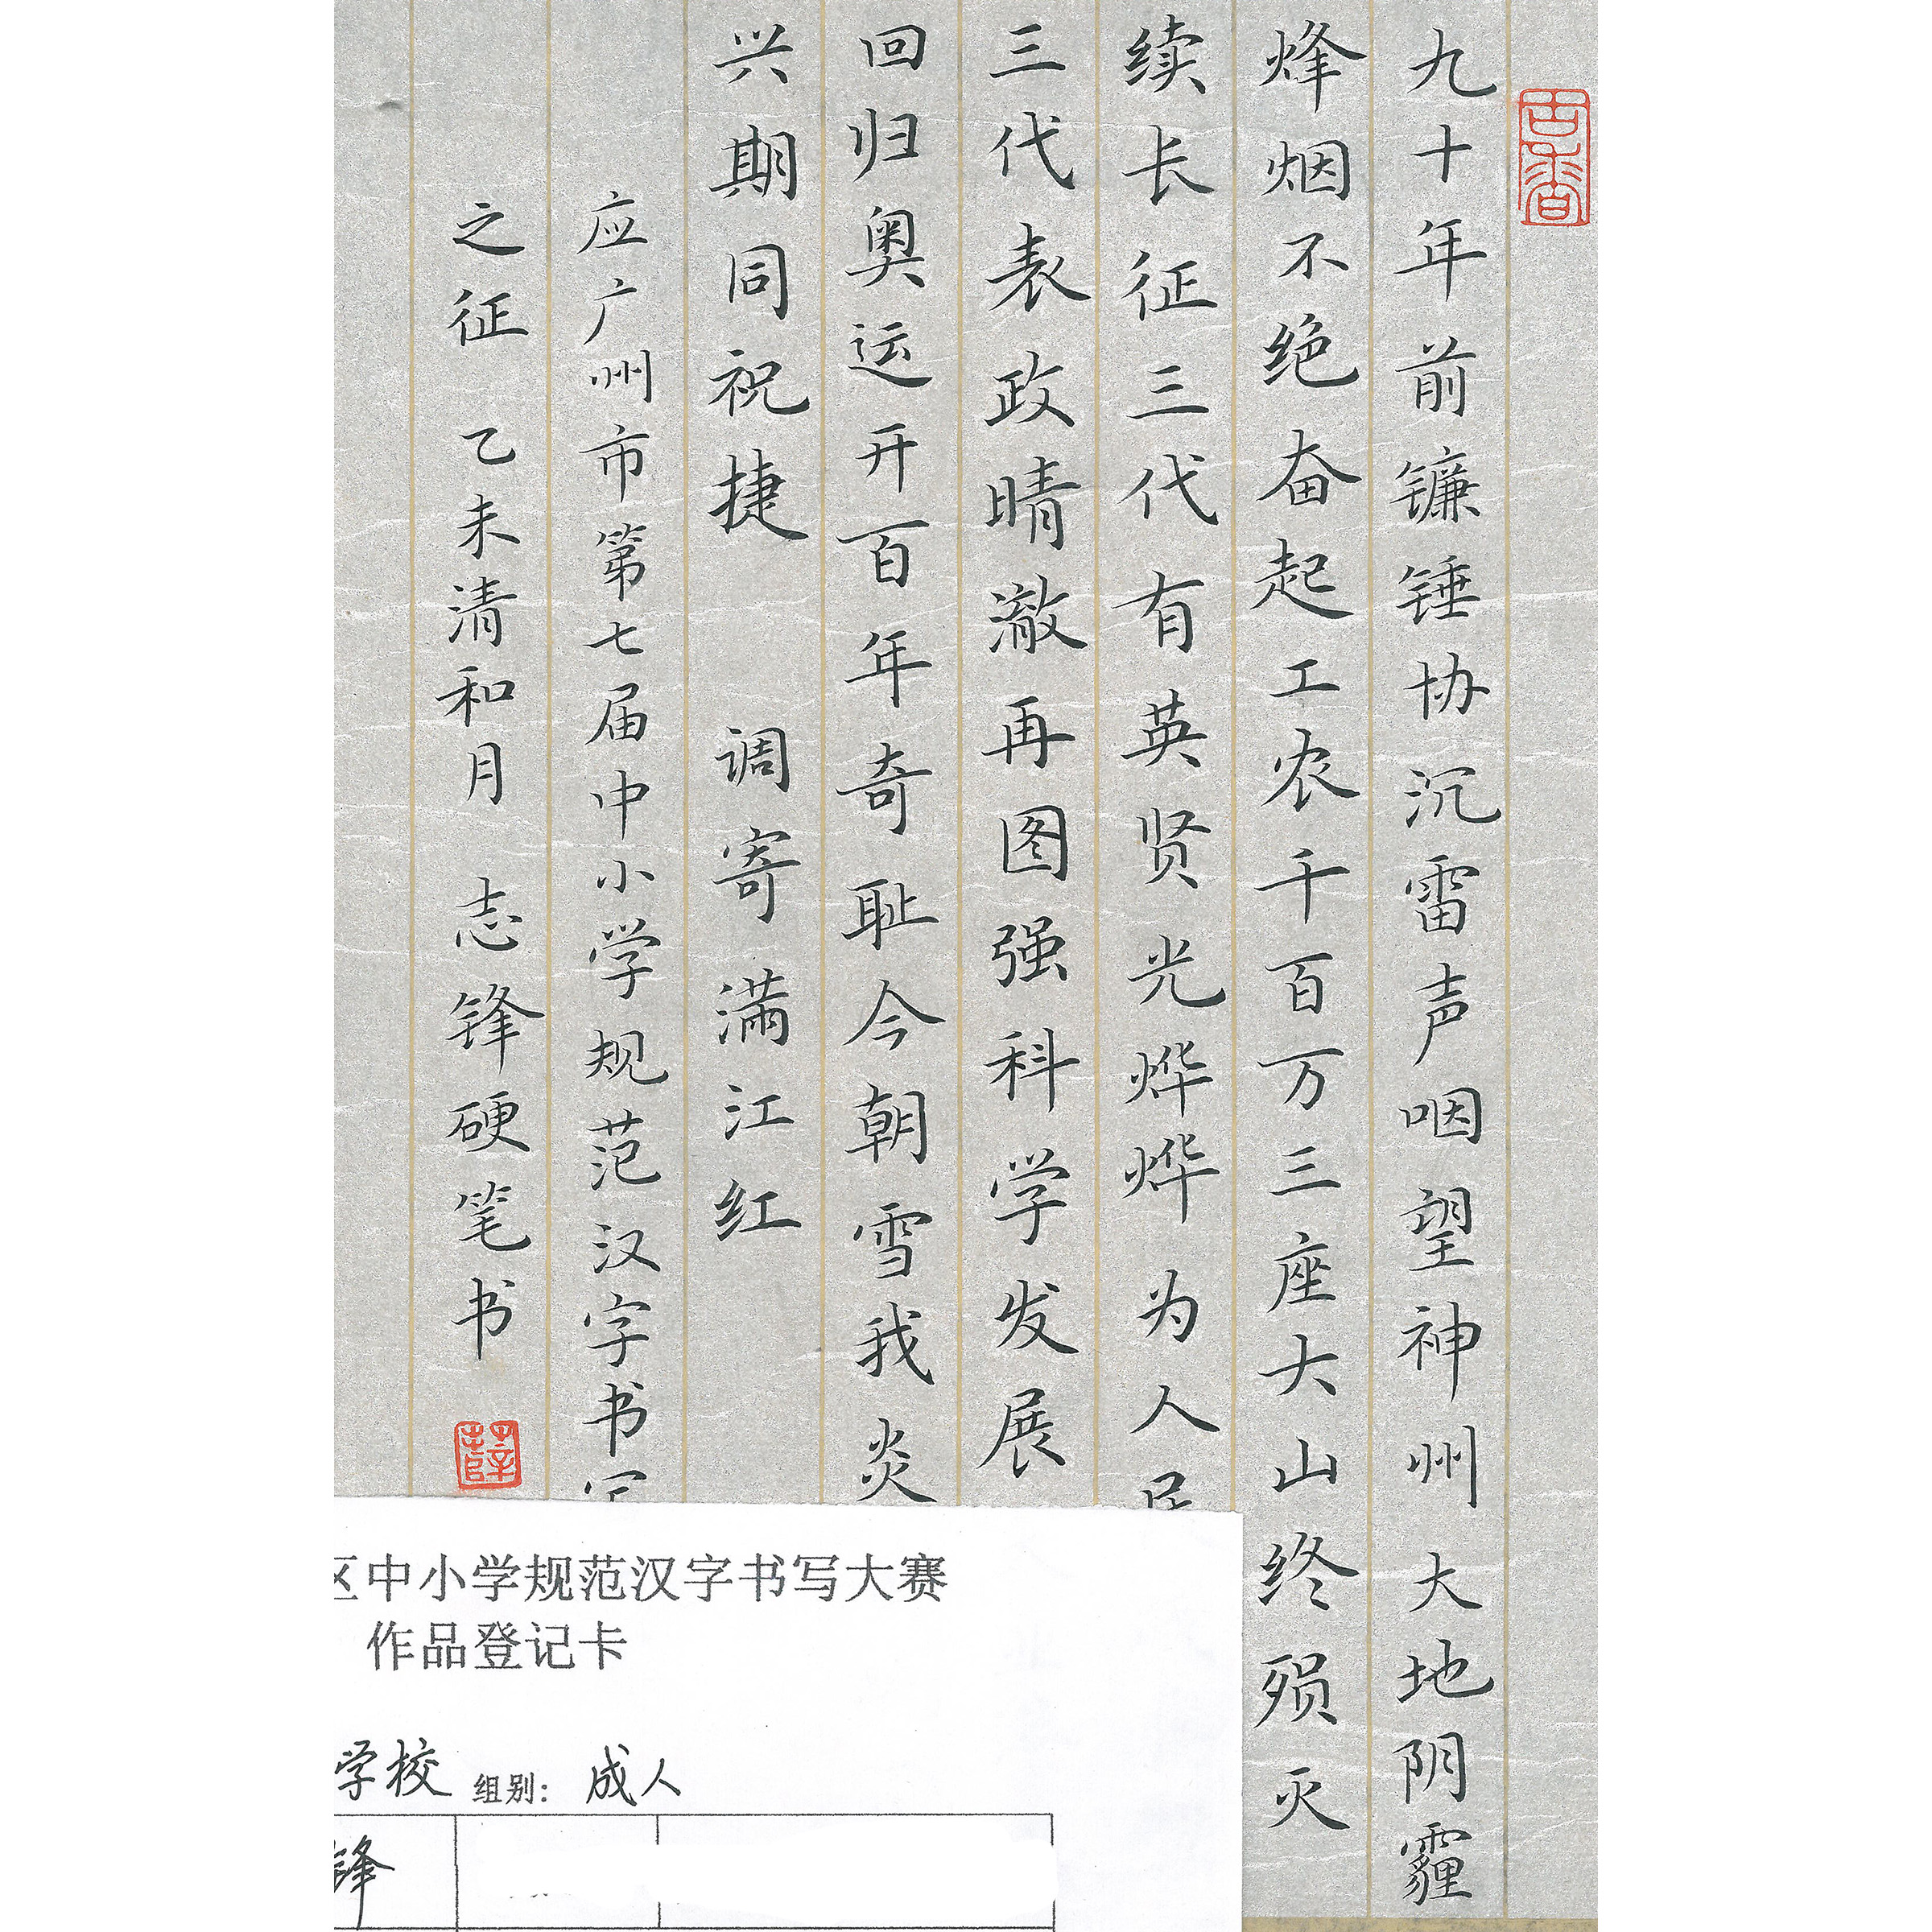 古香
九十年前镰锤协沉雷声咽望神州大地阴霾
烽烟不绝奋起工农千百万三座大山终殒灭
续长征三代有英贤光烨烨为人民
三代表政晴澈再图强科学发展
回归奥运开百年奇耻今朝雪我炎
兴期同祝捷 调寄满江红
应广州市第七届中小学规范汉字书写
之征 乙未清和月 志锋硬笔书
区中小学规范汉字书写大赛
作品登记卡
学校 组别: 成人
锋